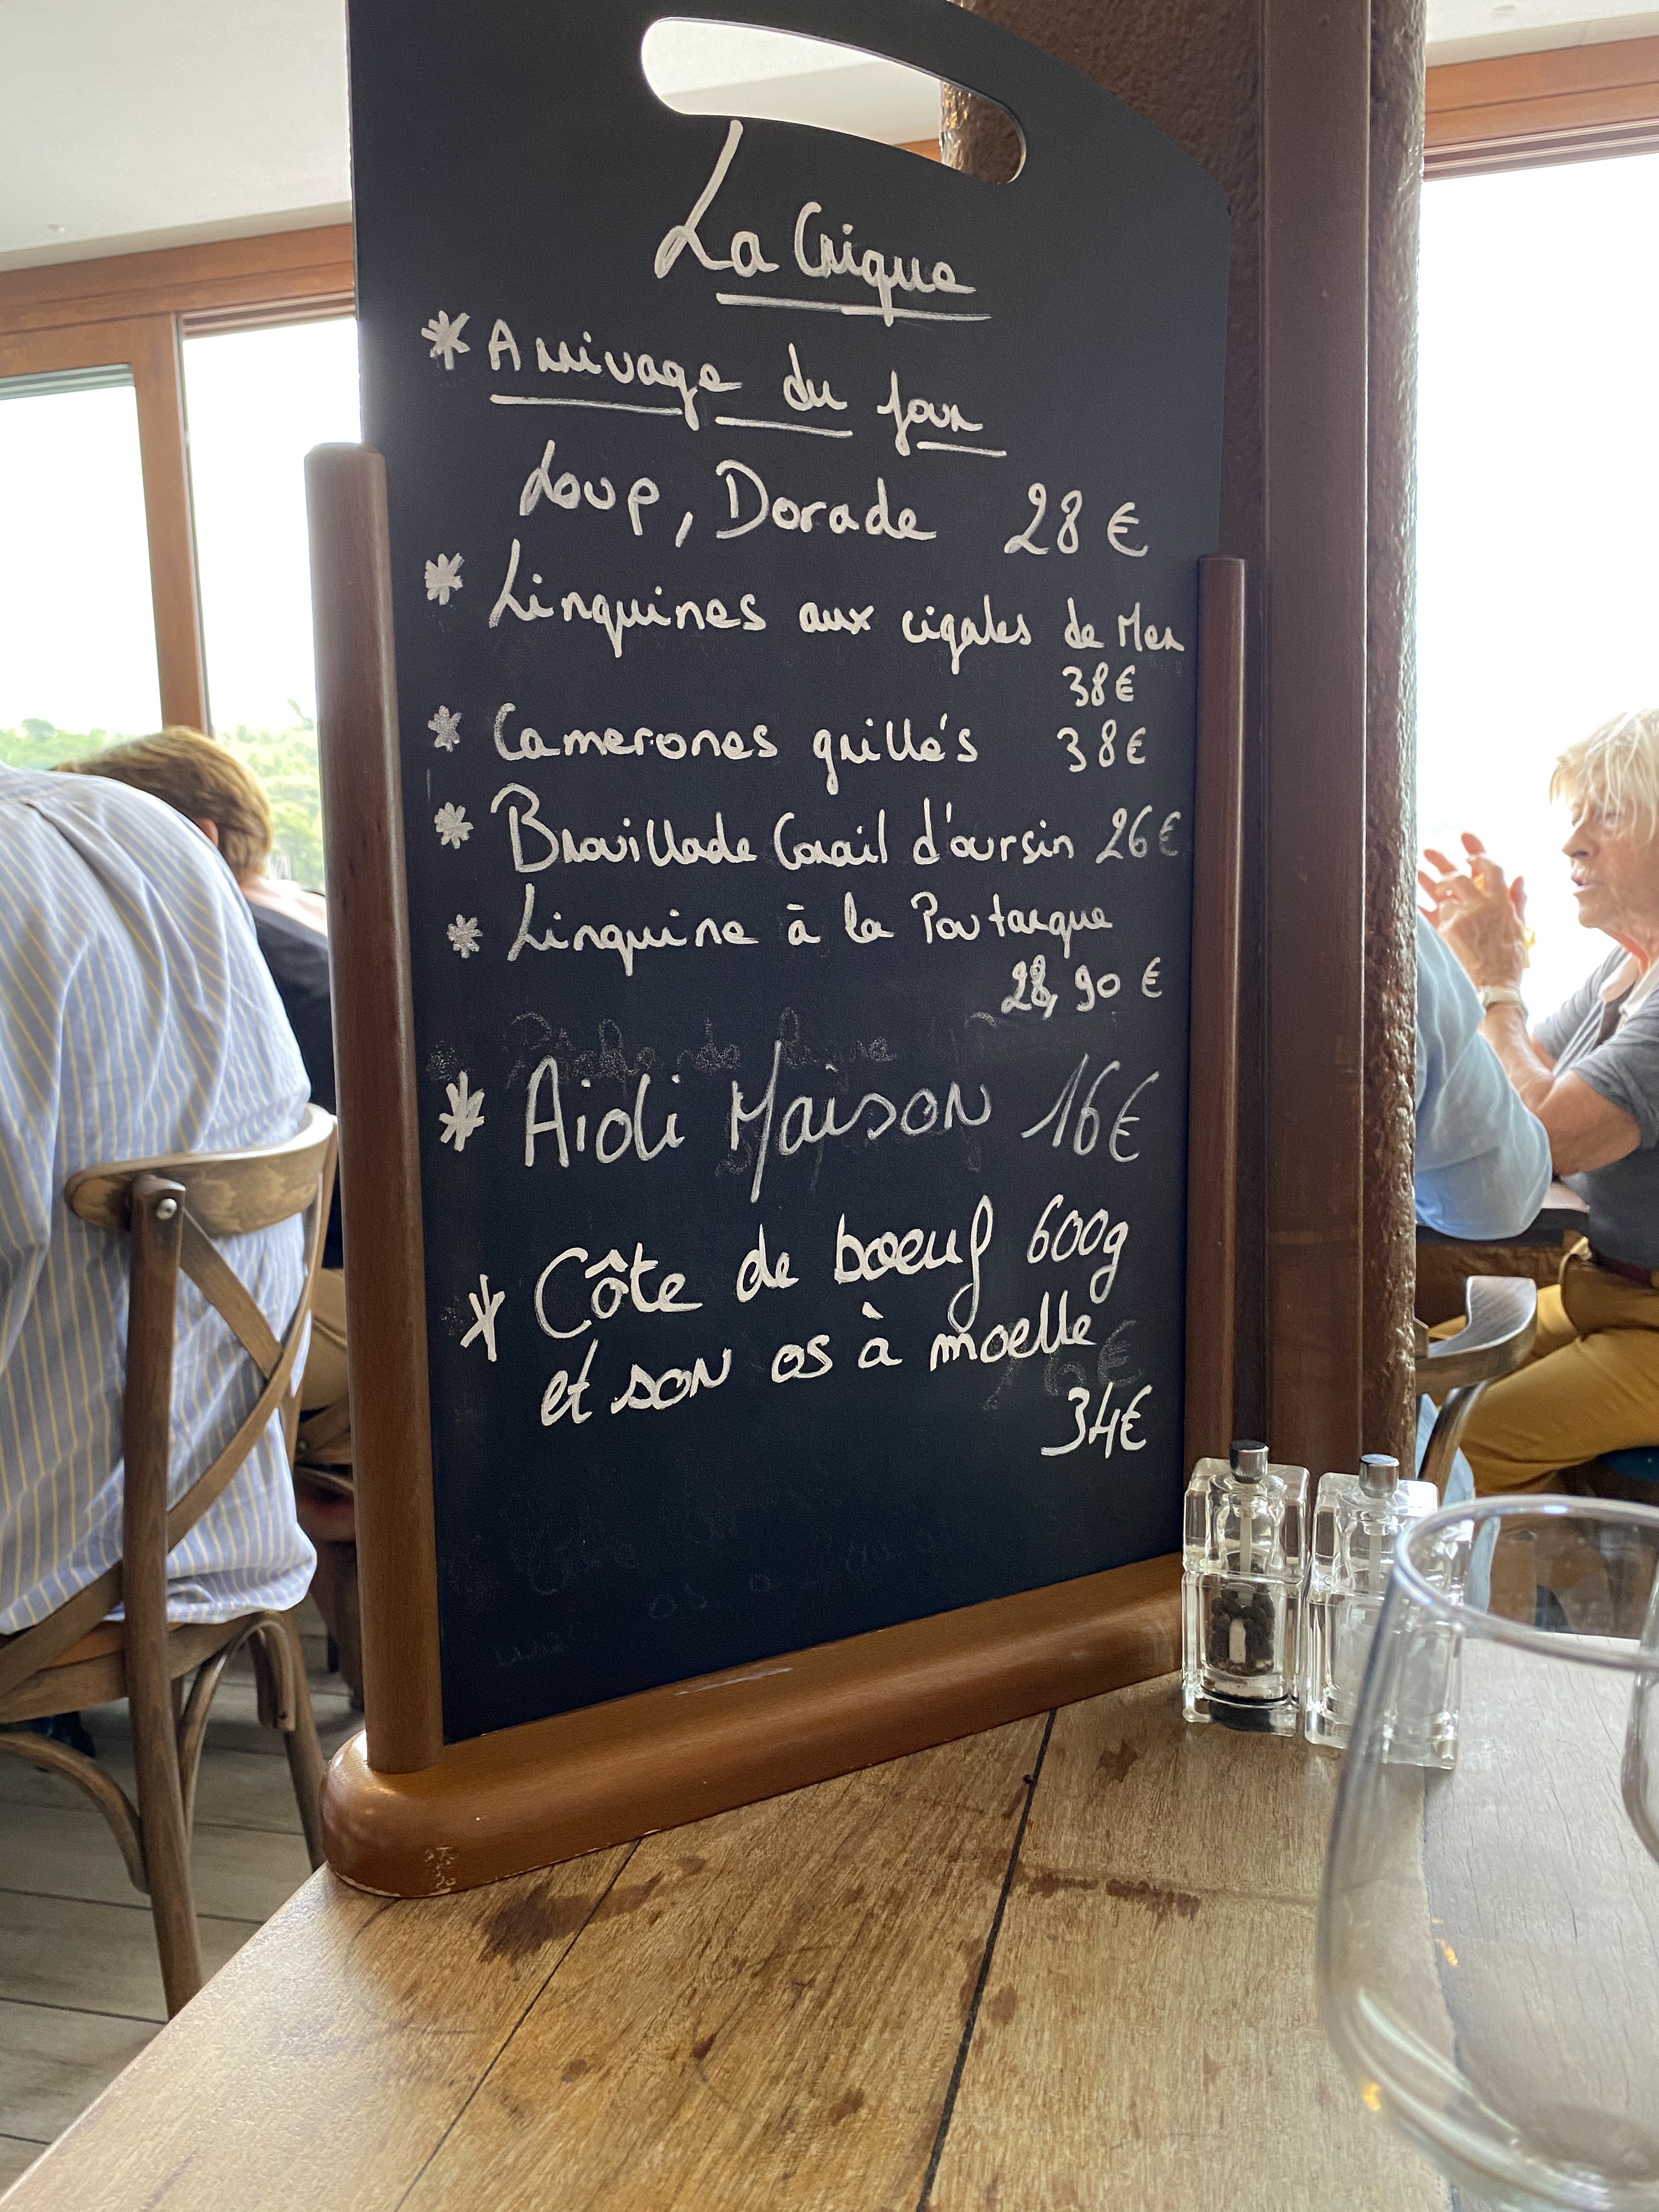 La Crique
* Arrivage du jour
Loup, Dorade 28 €
* Linquines aux cigales de Mer
38€
* Camerones grillés 38€
* Brouillade Corail d'oursin 26€
* Linquine à la Poutargue
28,90 €
* Aioli Maison 16€
* Côte de boeuf 600g
et son os à moelle
34€